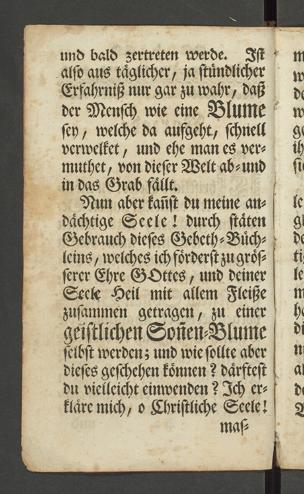 und bald zertreten werde. Ist
also aus täglicher, ja stündlicher
Erfahrniß nur gar zu wahr, daß
der Mensch wie eine Blume
sey, welche da aufgeht, schnell
verwelket, und ehe man es ver-
muthet, von dieser Welt ab- und
in das Grab fällt.
Nun aber kañst du meine an-
dächtige Seele! durch stäten
Gebrauch dieses Gebeth-Büch-
leins, welches ich förderst zu grös-
serer Ehre GOttes, und deiner
Seele Heil mit allem Fleiße
zusammen getragen, zu einer
geistlichen Soñen-Blume
selbst werden; und wie sollte aber
dieses geschehen können? därftest
du vielleicht einwenden? Ich er-
kläre mich, o Christliche Seele!
mas-